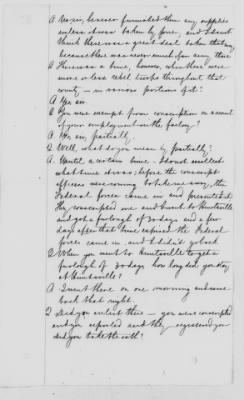 A No sir, I never furnished them any supplies
unless it was taken by force, and I don't
think there was a great deal taken that way,
because there was never much from away there
Q There was a time, however, when there were
more or less rebel troops throughout that
county, – in various portions of it?
A Yes, sir.
Q You were exempt from conscription on account
of your employment in the factory?
A Yes, sir, partially.
Q Well, what do you mean by partially?
A Until a certain time. I do not recollect
what time it was; before the conscript
officers were coming to take me away, the
Federal forces came in and prevented it.
They conscripted me and I went to Huntsville
and got a furlough of 30 days and a few
days after that time expired the Federal
forces came in, and I didn't go back
Q When you went to Huntsville to get a
furlough of 30 days how long did you stay
at Huntsville?
A I went there on one morning and came
back that night.
Q Did you enlist there – you were conscripted
and you reported and they registered you
did you take the oath?